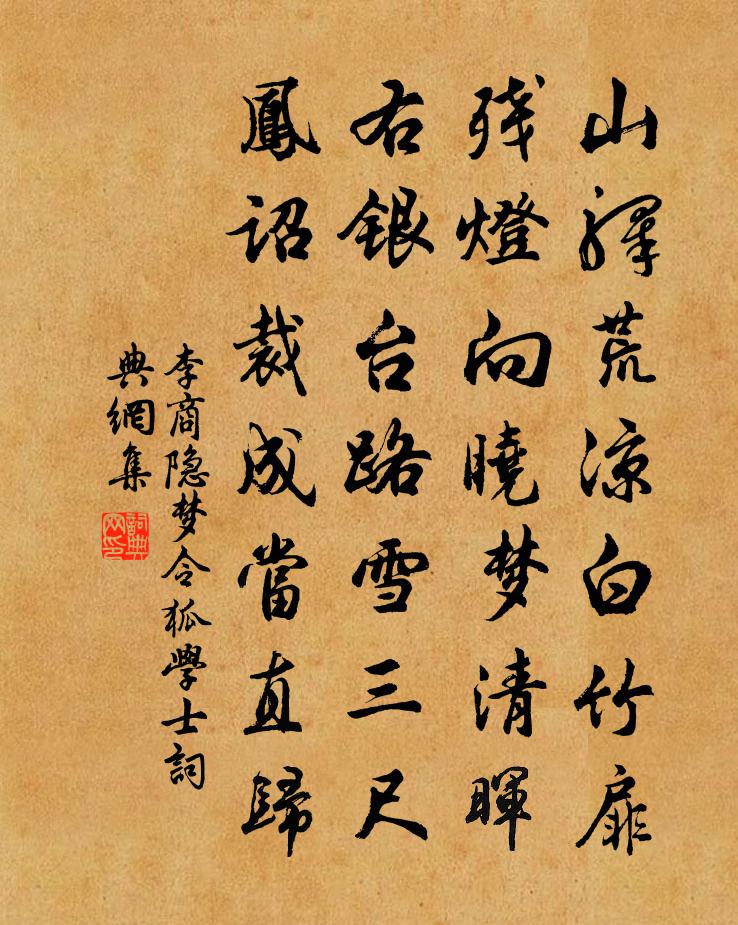 山驛荒凉白竹扉
残燈向曉梦清暉
右銀台路雪三尺
鳳诏裁成當直歸
李商隐梦令狐學士詞
典網集
詞典
网印